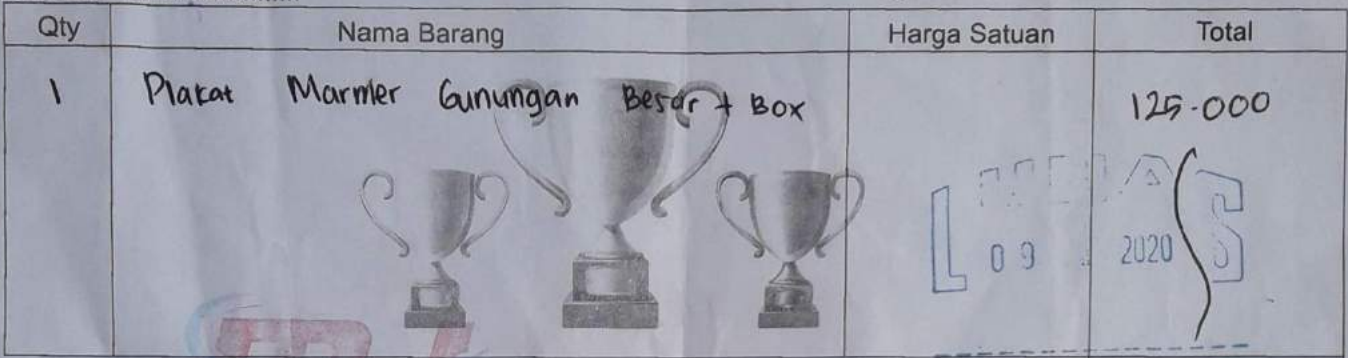 Qty Nama Barang Harga Satuan Total
1 Plakat Marmer Gunungan Besar + Box 125.000
LUNAS
09 2020